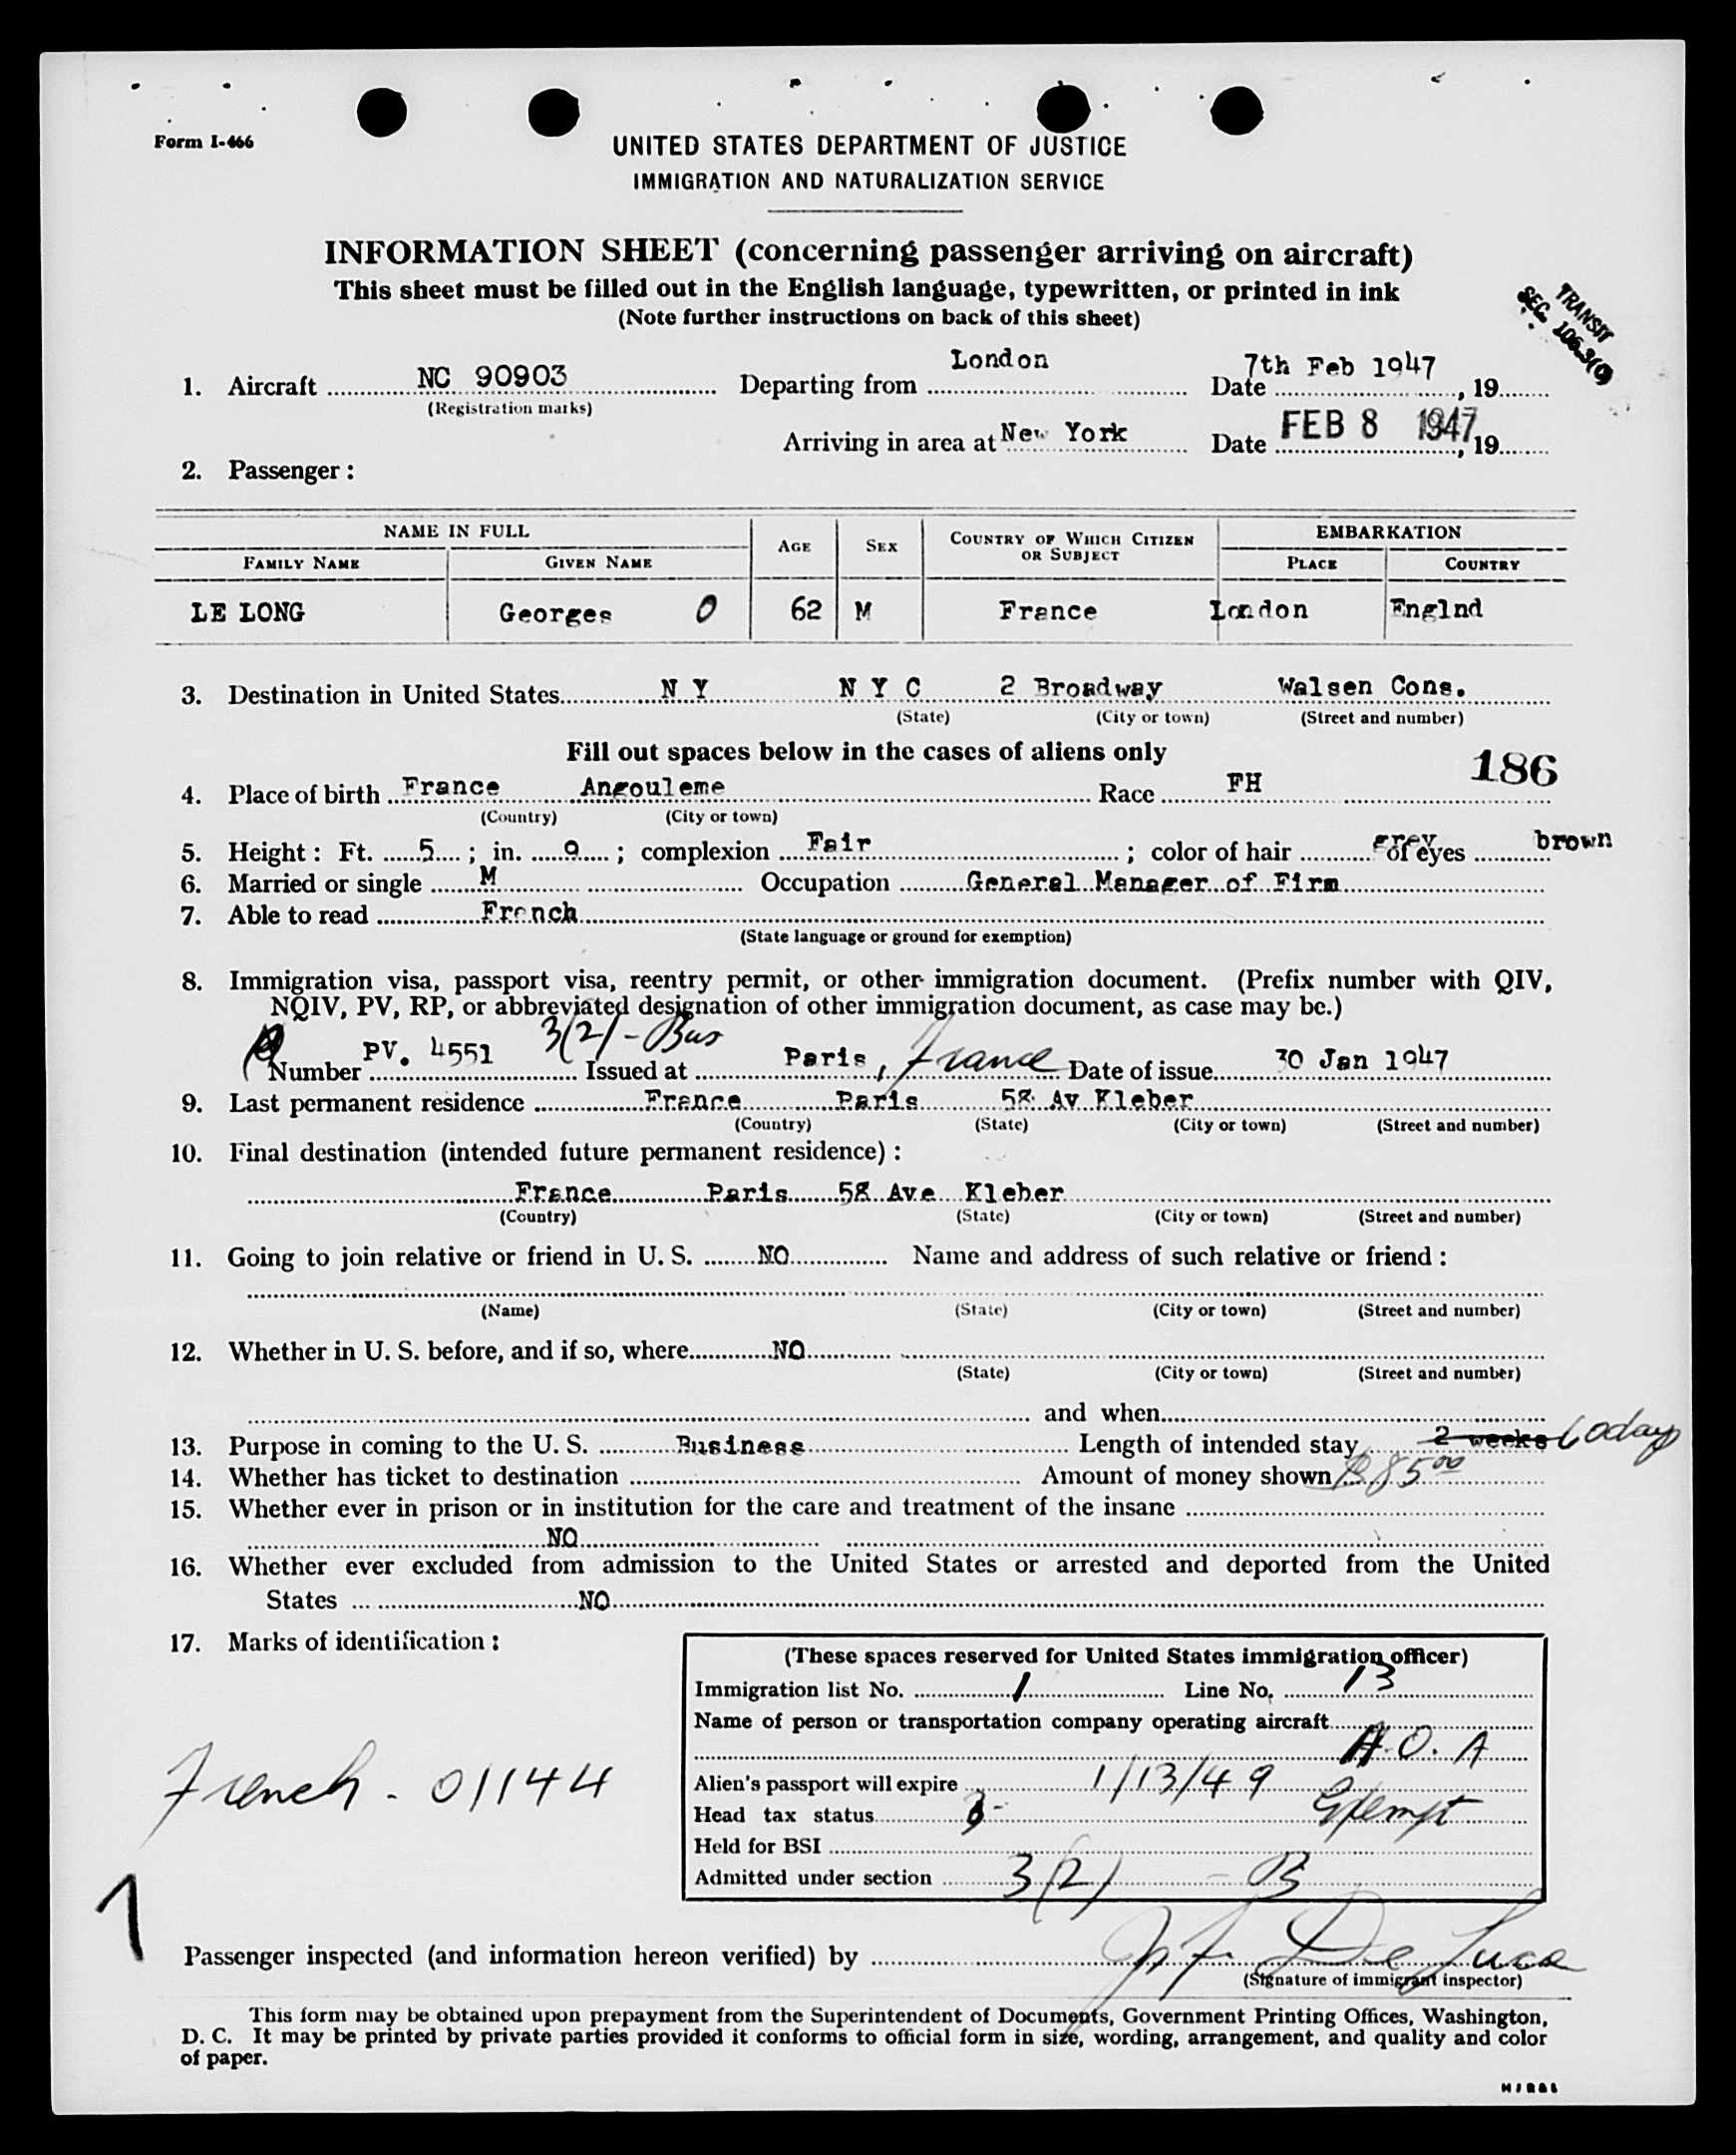 Form I-466
UNITED STATES DEPARTMENT OF JUSTICE
IMMIGRATION AND NATURALIZATION SERVICE
INFORMATION SHEET (concerning passenger arriving on aircraft)
This sheet must be filled out in the English language, typewritten, or printed in ink
(Note further instructions on back of this sheet)
TRANSIT
SEC. 106.3(c)
1. Aircraft NC 90903 Departing from London Date 7th Feb 1947, 19
(Registration marks)
Arriving in area at New York Date FEB 8 1947, 19
2. Passenger :
NAME IN FULL AGE SEX COUNTRY OF WHICH CITIZEN OR SUBJECT EMBARKATION
FAMILY NAME GIVEN NAME PLACE COUNTRY
LE LONG Georges O 62 M France London Englnd
3. Destination in United States N Y N Y C 2 Broadway Walsen Cons.
(State) (City or town) (Street and number)
Fill out spaces below in the cases of aliens only
186
4. Place of birth France Angouleme Race FH
(Country) (City or town)
5. Height : Ft. 5 ; in. 9 ; complexion Fair ; color of hair grey of eyes brown
6. Married or single M Occupation General Manager of Firm
7. Able to read French
(State language or ground for exemption)
8. Immigration visa, passport visa, reentry permit, or other immigration document. (Prefix number with QIV,
NQIV, PV, RP, or abbreviated designation of other immigration document, as case may be.)
3(2) - Bus
Number PV. 4551 Issued at Paris, France Date of issue 30 Jan 1947
9. Last permanent residence France Paris 58 Av Kleber
(Country) (State) (City or town) (Street and number)
10. Final destination (intended future permanent residence) :
France Paris 58 Ave Kleber
(Country) (State) (City or town) (Street and number)
11. Going to join relative or friend in U. S. NO Name and address of such relative or friend :
(Name) (State) (City or town) (Street and number)
12. Whether in U. S. before, and if so, where NO
(State) (City or town) (Street and number)
and when
13. Purpose in coming to the U. S. Business Length of intended stay 2 weeks 60 days
14. Whether has ticket to destination Amount of money shown 85 00
15. Whether ever in prison or in institution for the care and treatment of the insane
NO
16. Whether ever excluded from admission to the United States or arrested and deported from the United
States NO
17. Marks of identification :
(These spaces reserved for United States immigration officer)
Immigration list No. 1 Line No. 13
Name of person or transportation company operating aircraft
A. O. A
Alien's passport will expire 1/13/49
Head tax status Exempt
Held for BSI
Admitted under section 3(2) - B
French - 01144
1
Passenger inspected (and information hereon verified) by De Luca
(Signature of immigrant inspector)
This form may be obtained upon prepayment from the Superintendent of Documents, Government Printing Offices, Washington,
D. C. It may be printed by private parties provided it conforms to official form in size, wording, arrangement, and quality and color
of paper.